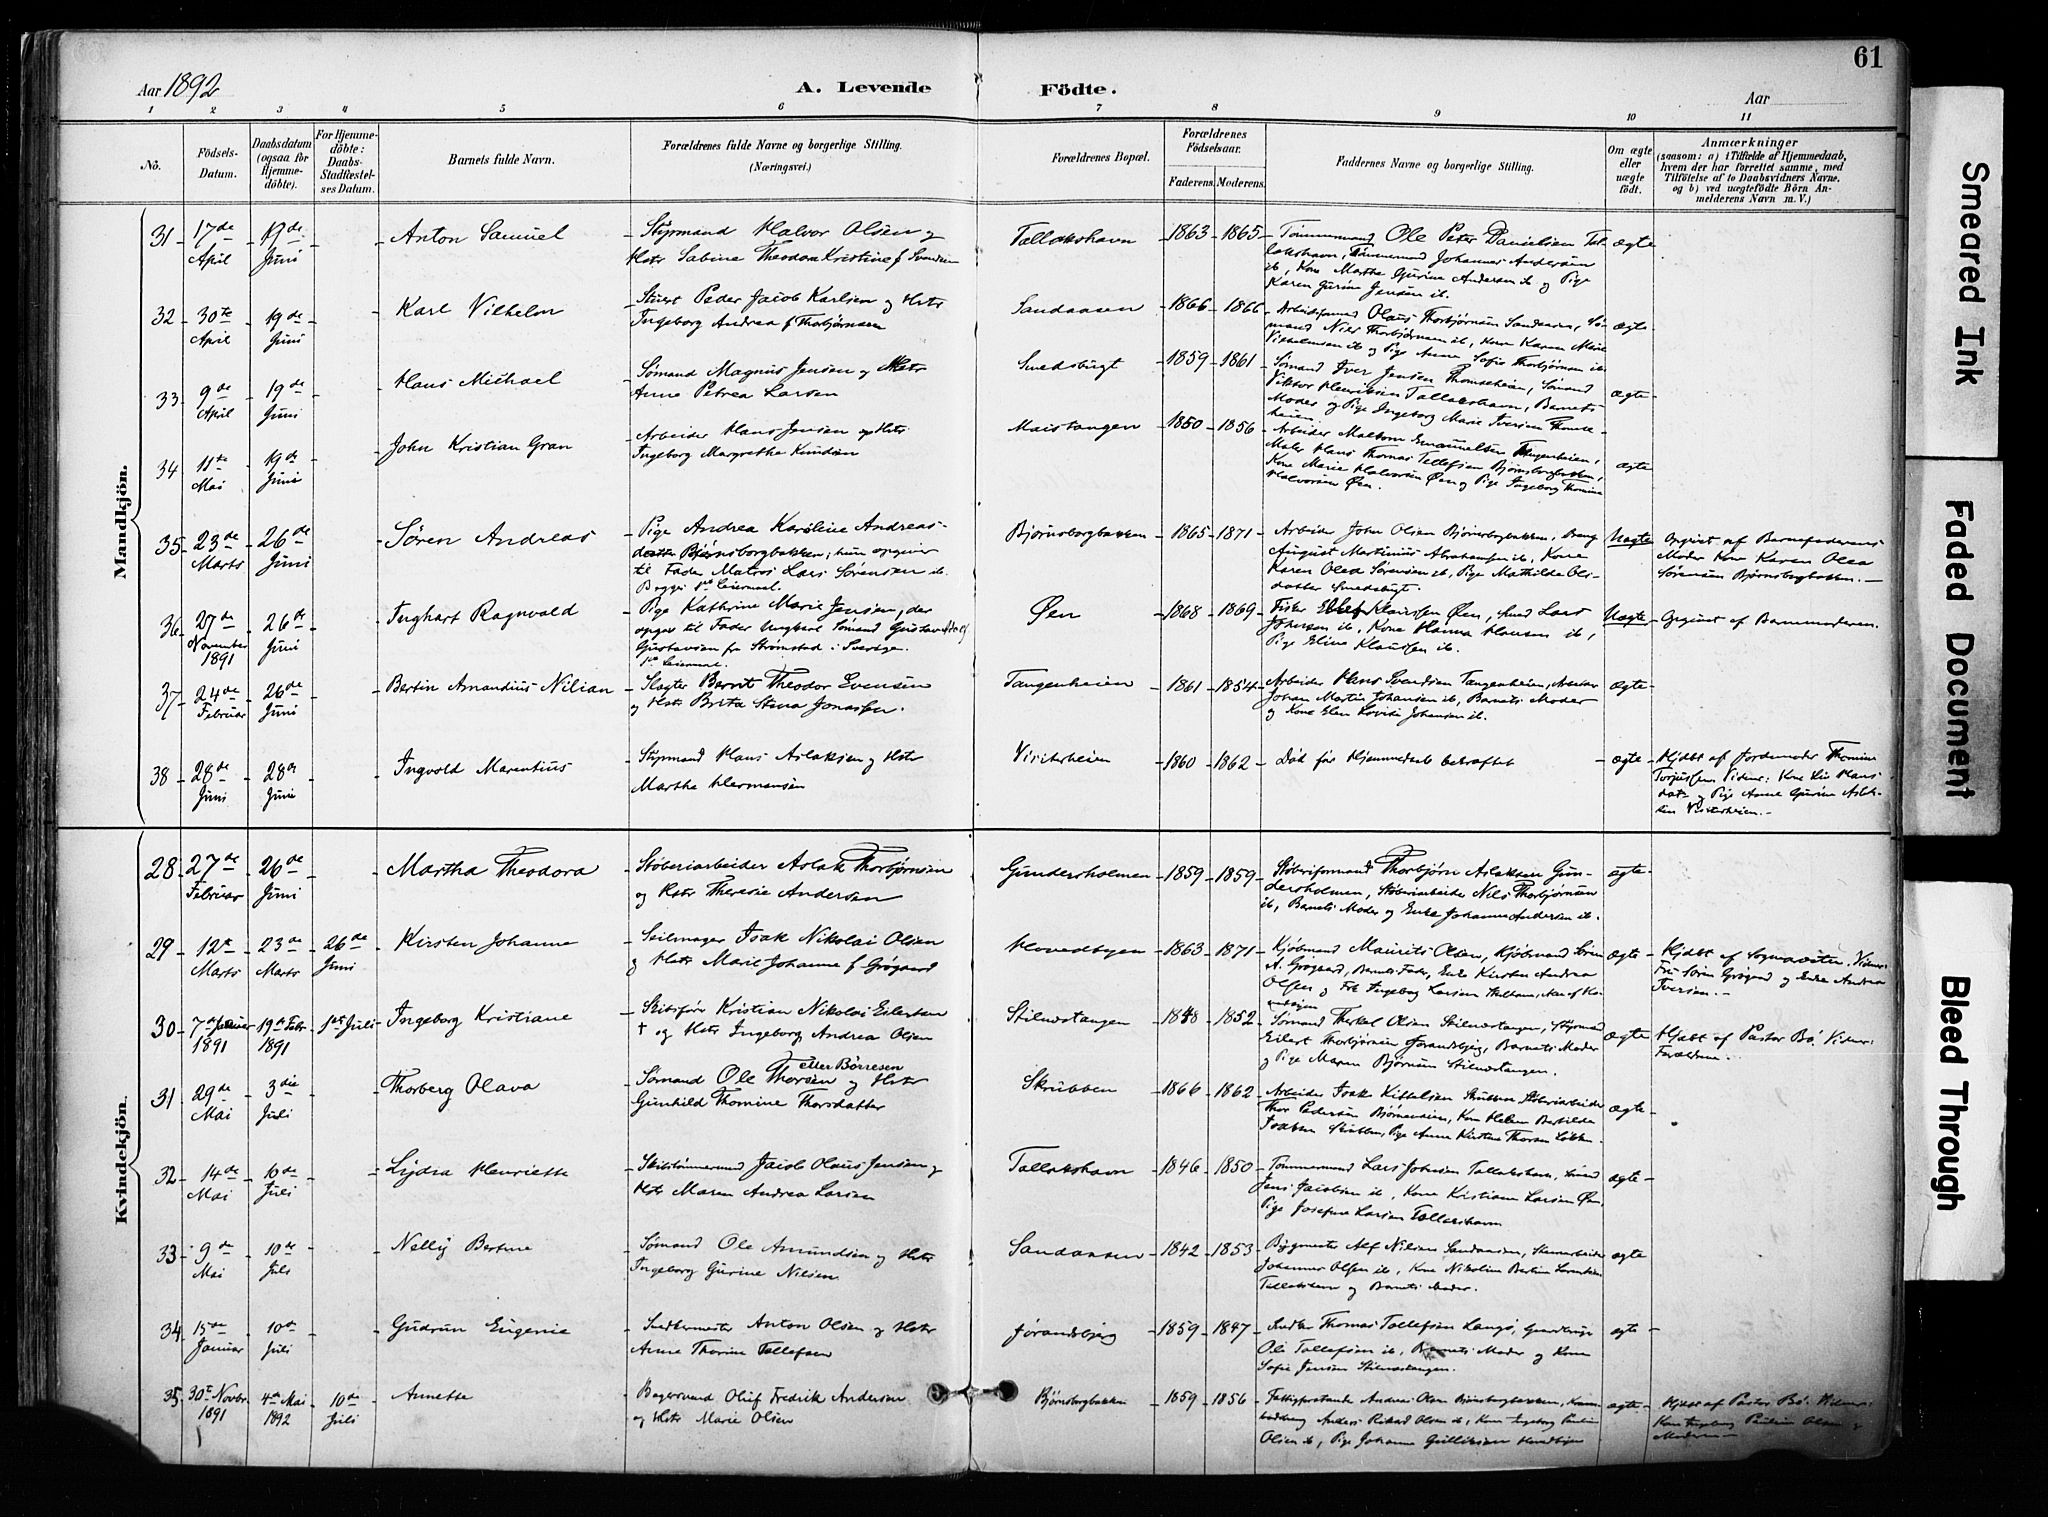 61
Aar 1892
A. Levende Födte.
Aar
1 2 3 4 5 6 7 8 9 10 11
No.
Födsels-Datum.
Daabsdatum (ogsaa for Hjemmedöbte).
For Hjemmedöbte: Daabs-Stadfæstelses Datum.
Barnets fulde Navn.
Forældrenes fulde Navne og borgerlige Stilling. (Næringsvei.)
Forældrenes Bopæl.
Forældrenes Födselsaar.
Faderens. Moderens.
Faddernes Navne og borgerlige Stilling.
Om ægte eller uægte födt.
Anmærkninger
(saasom: a) i Tilfælde af Hjemmedaab, hvem der har forrettet samme, med Tilföielse af to Daabsvidners Navne. og b) ved uægtefödte Börn Anmelderens Navn m. V.)
Mandkjön.
31 17de April 19de Juni Anton Samuel
Styrmand Halvor Olsen og
Hstr Sabine Theodora Kristine f Svendsen
Tallakshavn 1863 1865
Tømmermand Ole Peter Danielsen Tallakshavn, Tømmermand Johannes Andersen
ib, Kone Martha Gurine Andersen ib og Pige
Karen Gurine Jensen ib.
ægte
32 30te April 19de Juni Karl Vilhelm
Stuert Peder Jacob Karlsen og Hstr
Ingeborg Andrea f Thorbjørnsen
Sandaasen 1866 1866
Arbeidsformand Olaus Thorbjørnsen Sandaasen, Sømand Nils Thorbjørnsen ib, Kone Karen Marie
Vilhelmsen ib og Pige Anne Sofie Thorbjørnsen ib
ægte
33 9de April 19de Juni Hans Michael
Sømand Magnus Jensen og Hstr
Anne Petrea Larsen
Smedsbugt 1859 1861
Sømand Iver Jensen Thomseheien, Sømand
Viktor Henriksen Tallakshavn, Barnets
Moder og Pige Ingeborg Marie Iversen Thomseheien
ægte
34 11te Mai 19de Juni John Kristian Gran
Arbeider Hans Jensen og Hstr
Ingeborg Margrethe Knudsen
Maistangen 1850 1856
Arbeider Maltom Emanuelsen Tangenheien,
Maler Hans Thomas Tellefsen Bjørnsborgbakken,
Kone Marie Halvorsen Øen og Pige Ingeborg Thomine
Halvorsen Øen.
ægte
35 23de Marts 26de Juni Søren Andreas
Pige Andrea Karoline Andreasdatter Bjørnsborgbakken; hun opgiver
til Fader Matros Lars Sørensen ib.
Begges 1ste Leiermaal.
Bjørnsborgbakken 1865 1871
Arbeider John Olsen Bjørnsborgbakken,
August Martinius Abrahamsen ib, Kone
Karen Olea Sørensen ib, Pige Mathilde Olsdatter Smedsbugt.
Uægte
Opgivet af Barnefaderens
Moder Kone Karen Olea
Sørensen Bjørnsborgbakken.
36 27de November 1891 26de Juni Inghart Ragnvald
Pige Kathrine Marie Jensen, der
opgiver til Fader Ungkarl Sømand Gustav Adolf
Gustavsen fra Strømstad i Sverige.
1ste Leiermaal.
Øen 1868 1869
Fisker Ellef Klaussen Øen, Sømd Lars
Johnsen ib, Kone Hanna Hansen ib,
Pige Eline Klaussen ib.
Uægte
Opgivet af Barnemoderen.
37 24de Februar 26de Juni Bertin Amandius Nilian
Slagter Bernt Theodor Evensen
og Hstr Brita Stina Jonassen.
Tangenheien 1861 1854
Arbeider Hans Svendsen Tangenheien, Arbeider
Johan Martin Johansen ib, Barnets Moder
og Kone Elen Lovise Johansen ib.
ægte
38 28de Juni 28de Juni Ingvold Marentius
Styrmand Hans Aslaksen og Hstr
Martha Hermansen
Visterheien 1860 1862
Død før Hjemmedaab bekræftet
ægte
Hjdbt af Jordemoder Thomine
Torjussen. Vidner: Kone Liv Hansdat. og Pige Anne Gurine Aslaksen Visterheien.
Kvindekjön.
28 27de Februar 26de Juni Martha Theodora
Støberiarbeider Aslak Thorbjørnsen
og Hstr Theresie Andersen
Gundersholmen 1859 1859
Støberiformand Thorbjørn Aslaksen Gundersholmen, Støberiarbeider Nils Thorbjørnsen
ib, Barnets Moder og Enke Johanne Andersen ib.
ægte
29 12te Marts 23de Marts 26de Juni Kirsten Johanne
Seilmager Isak Nikolai Olsen
og Hstr Marie Johanne f Grøgaard
Hovedbyen 1863 1871
Kjøbmand Maurits Olsen, Kjøbmand Søren
A. Grøgaard, Barnets Fader, Enke Kirsten Andrea
Olsen og Frk Ingeborg Larsen
ægte
Hjdbt af Sognepresten. Vidner:
Fru Sørine Grøgaard og Enke Andrea
Iversen.
30 7de Januar 1891 19de Febr 1891 1ste Juli Ingeborg Kristiane
Skibsfør Kristian Nikolai Eilertsen
† og Hstr Ingeborg Andrea Olsen
Stilnestangen 1848 1852
Sømand Therkel Olsen Stilnestangen, Styrmd
Eilert Thorbjørnsen Jørandsbjerg, Barnets Moder
og Pige Maren Bjørnsen Stilnestangen.
ægte
Hjdbt af Pastor Bø. Vidner:
Forældrene.
31 29de Mai 3die Juli Thorberg Olava
Sømand Ole Thorsen eller Børresen og Hstr
Gunhild Thomine Thorsdatter
Skrubben 1866 1862
Arbeider Isak Kittelsen Skrubben, Støberiarbeider
Thor Pedersen Bjørnaasen, Kone Helene Bertilde
Isaksen Skrubben, Pige Anne Kirstine Thorsen
ægte
32 14de Mai 10de Juli Lydia Henriette
Skibstømmermd Jacob Olaus Jensen og
Hstr Maren Andrea Larsen
Tallakshavn 1846 1850
Tømmermand Lars Johnsen Tallakshavn, Sømd
Jens Jacobsen ib, Kone Kristiane Larsen Øen,
Pige Josefine Larsen Tallakshavn
ægte
33 9de Mai 10de Juli Nelly Bertine
Sømand Ole Amundsen og Hstr
Ingeborg Gurine Nilsen.
Sandaasen 1842 1853
Bygmester Alf Nilsen Sandaasen, Stenarbeider
Johannes Olsen ib, Kone Nikoline Bertine Larentsen
Tallakshavn og Barnets Moder.
ægte
34 15de Januar 10de Juli Gudrun Eugenie
Snedkermester Anton Olsen og Hstr
Anne Thorine Tellefsen
Jørandsbjerg 1859 1847
Snedker Thomas Tellefsen Langø, Gaardbruger
Ole Tellefsen ib, Barnets Moder og Kone
Sofie Jensen Stilnestangen.
ægte
35 30te Novbr. 1891 4de Mai 1892 10de Juli Annette
Bagersvend Oluf Fredrik Andersen
og Hstr Marie Olsen
Bjørnsborgbakken 1859 1856
Fattigforstander Andreas Olsen Bjørnsborgbakken,
Anders Rikard Olsen ib, Kone Ingeborg Pauline
Olsen ib, Pige Johanne Gulliksen Hovedbyen
ægte
Hjdbt af Pastor Bø. Vidner:
Kone Ingeborg Pauline Olsen og
Moderen
Smeared Ink
Faded Document
Bleed Through